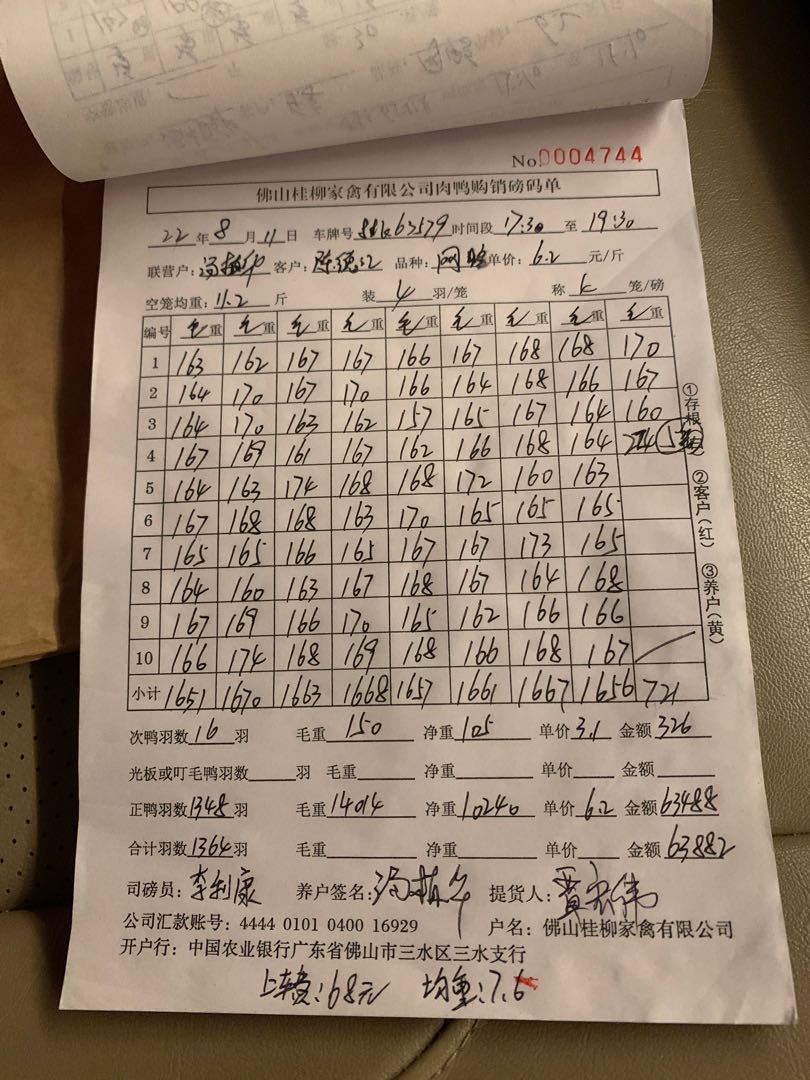 No.0004744
佛山桂柳家禽有限公司肉鸭购销磅码单
22年8月11日 车牌号 63579 时间段 17:30 至 19:30
联营户: 客户:陈德江 品种: 单价:6.2 元/斤
空笼均重:11.2 斤 装 4 羽/笼 称 笼/磅
编号 毛重 毛重 毛重 毛重 毛重 毛重 毛重 毛重 毛重
1 163 162 167 167 166 167 168 168 170
2 164 170 167 170 166 164 168 166 167
3 164 170 163 162 157 165 167 164 160
4 167 169 161 167 162 166 168 164 224
5 164 163 174 168 168 172 160 163
6 167 168 168 163 170 165 165 165
7 165 165 166 165 167 167 173 165
8 164 160 163 167 168 167 164 168
9 167 169 166 170 165 162 166 166
10 166 174 168 169 168 166 168 167
小计 1651 1670 1663 1668 1657 1661 1667 1656 721
①存根 ②客户(红) ③养户(黄)
次鸭羽数 16 羽 毛重 150 净重 105 单价 3.1 金额 326
光板或叮毛鸭羽数 羽 毛重 净重 单价 金额
正鸭羽数 1348 羽 毛重 14014 净重 10240 单价 6.2 金额 63488
合计羽数 1364 羽 毛重 净重 单价 金额 63882
司磅员:李利康 养户签名: 提货人:贾宏伟
公司汇款账号:4444 0101 0400 16929 户名:佛山桂柳家禽有限公司
开户行:中国农业银行广东省佛山市三水区三水支行
上车费:68元 均重:7.6